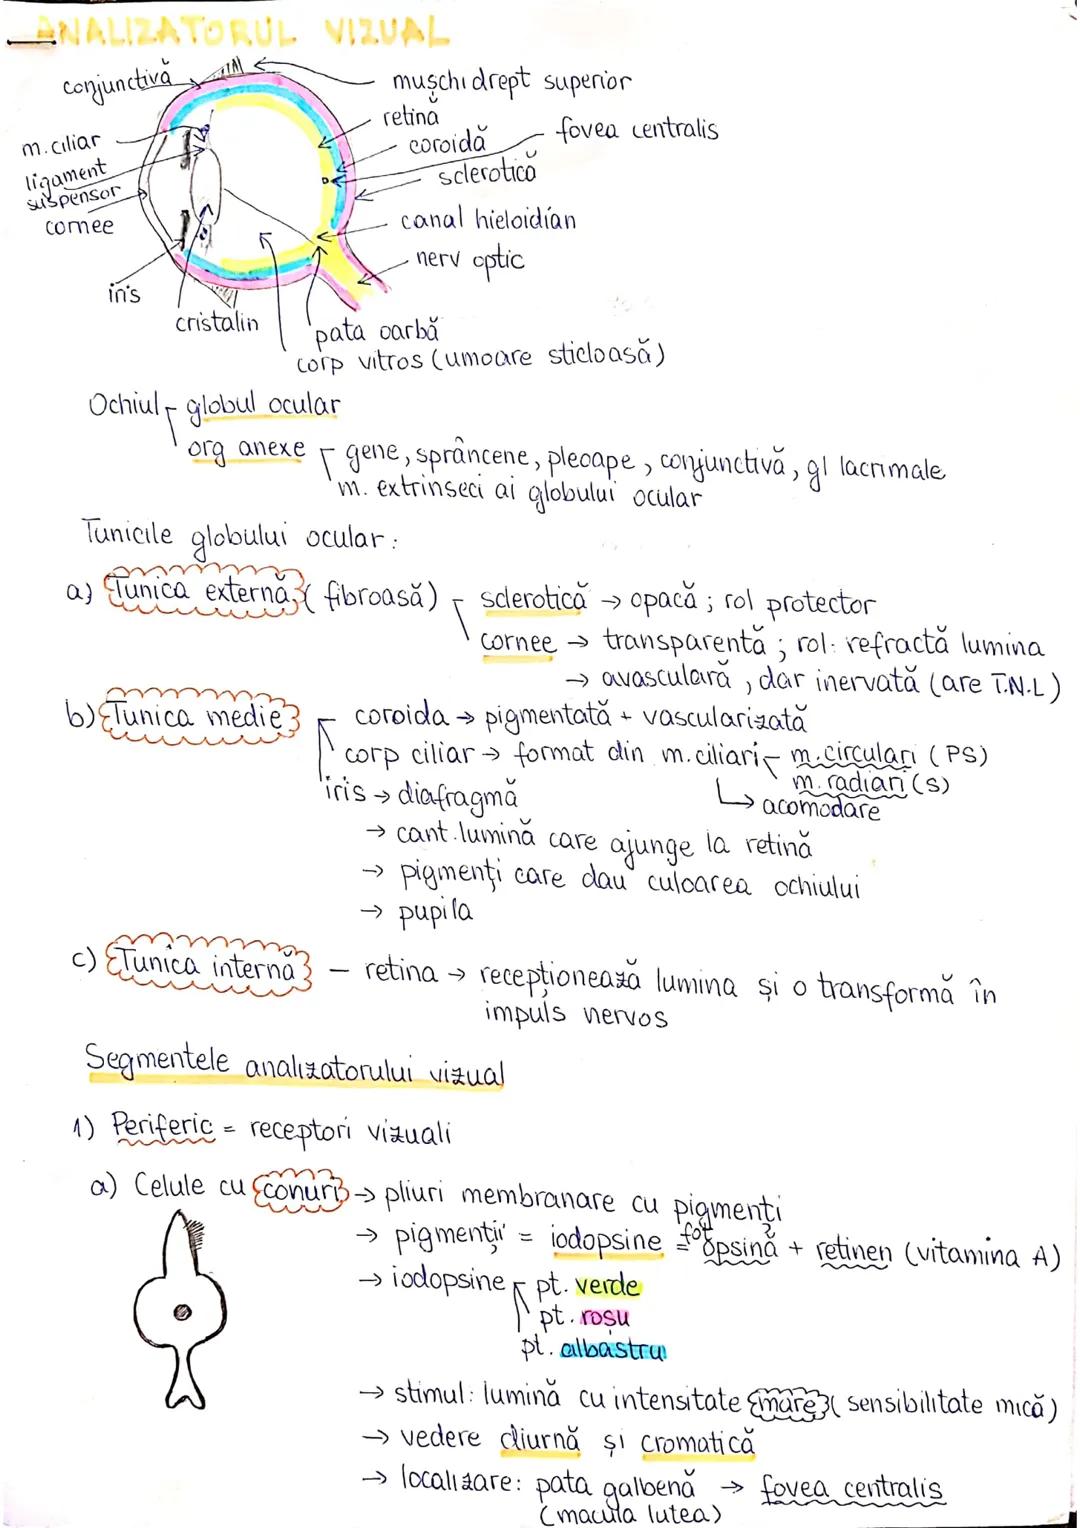 ANALIZATORUL VIZUAL
conjunctivă
mușchi drept superior
retină
fovea centralis
m.ciliar
coroidă
ligament
suspensor
sclerotică
cornee
canal hieloidian
nerv optic
iris
cristalin
pata oarbă
corp vitros (umoare sticloasă)
Ochiul globul ocular
org anexe gene, sprâncene, pleoape, conjunctivă, gl lacrimale
m. extrinseci ai globului ocular
Tunicile globului ocular:
a) Tunica externă (fibroasă) sclerotică → opacă; rol protector
cornee → transparentă; rol: refractă lumina
→ avasculară, dar inervată (are T.N.L)
b) Tunica medie coroida → pigmentată + vascularizată
corp ciliar → format din m.ciliari m.circulari (PS)
m.radiari (s)
iris → diafragmă
↳ acomodare
→ cant.lumină care ajunge la retină
→ pigmenți care dau culoarea ochiului
→ pupila
c) Tunica internă - retina → recepționează lumina și o transformă în
impuls nervos
Segmentele analizatorului vizual
1) Periferic = receptori vizuali
a) Celule cu conuri → pliuri membranare cu pigmenți
→ pigmenții = iodopsine = fotopsină + retinen (vitamina A)
→ iodopsine pt. verde
pt. roșu
pt. albastru
→ stimul: lumină cu intensitate mare (sensibilitate mică)
→ vedere diurnă și cromatică
→ localizare: pata galbenă → fovea centralis
(macula lutea)